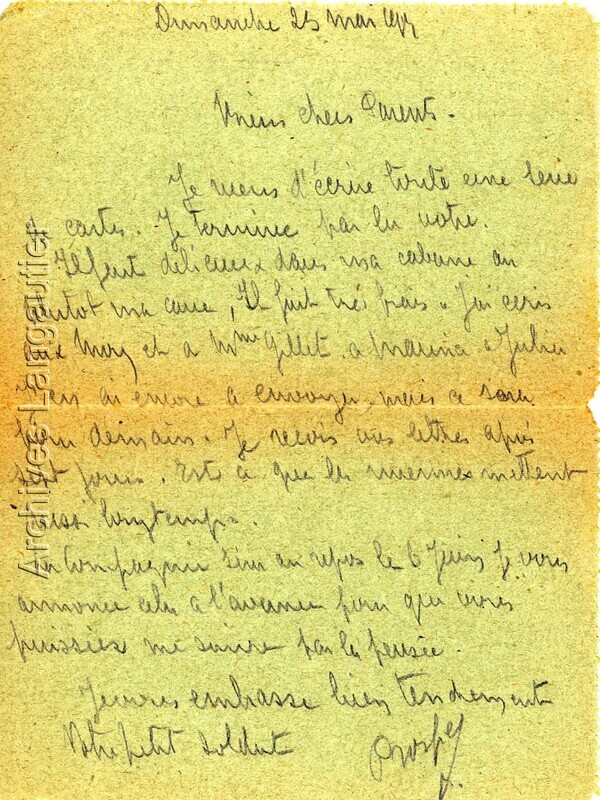 Dimanche 23 mai 1915
Mièns chers Parents.
Je viens d'écrire toute une série
d cartes. Je termine par la votre.
Il fait délicieux dans ma cabane ou
plutot ma cave, Il fait tres frais. J'ai écris
aux Moy et a Mme Gillet a Marina a Julia
J'en ai encore a envoyer mais ce sera
pour demain. Je reçois vos lettres après
sept jours. Est ce que les miennes mettent
aussi longtemps.
La Compagnie sera au repos le 6 Juin Je vous
annonce cela a l'avance pour que vous
puissiez me suivre par la pensée.
Je vous embrasse bien tendrement
Votre petit soldat Prosper
Archives Langautier